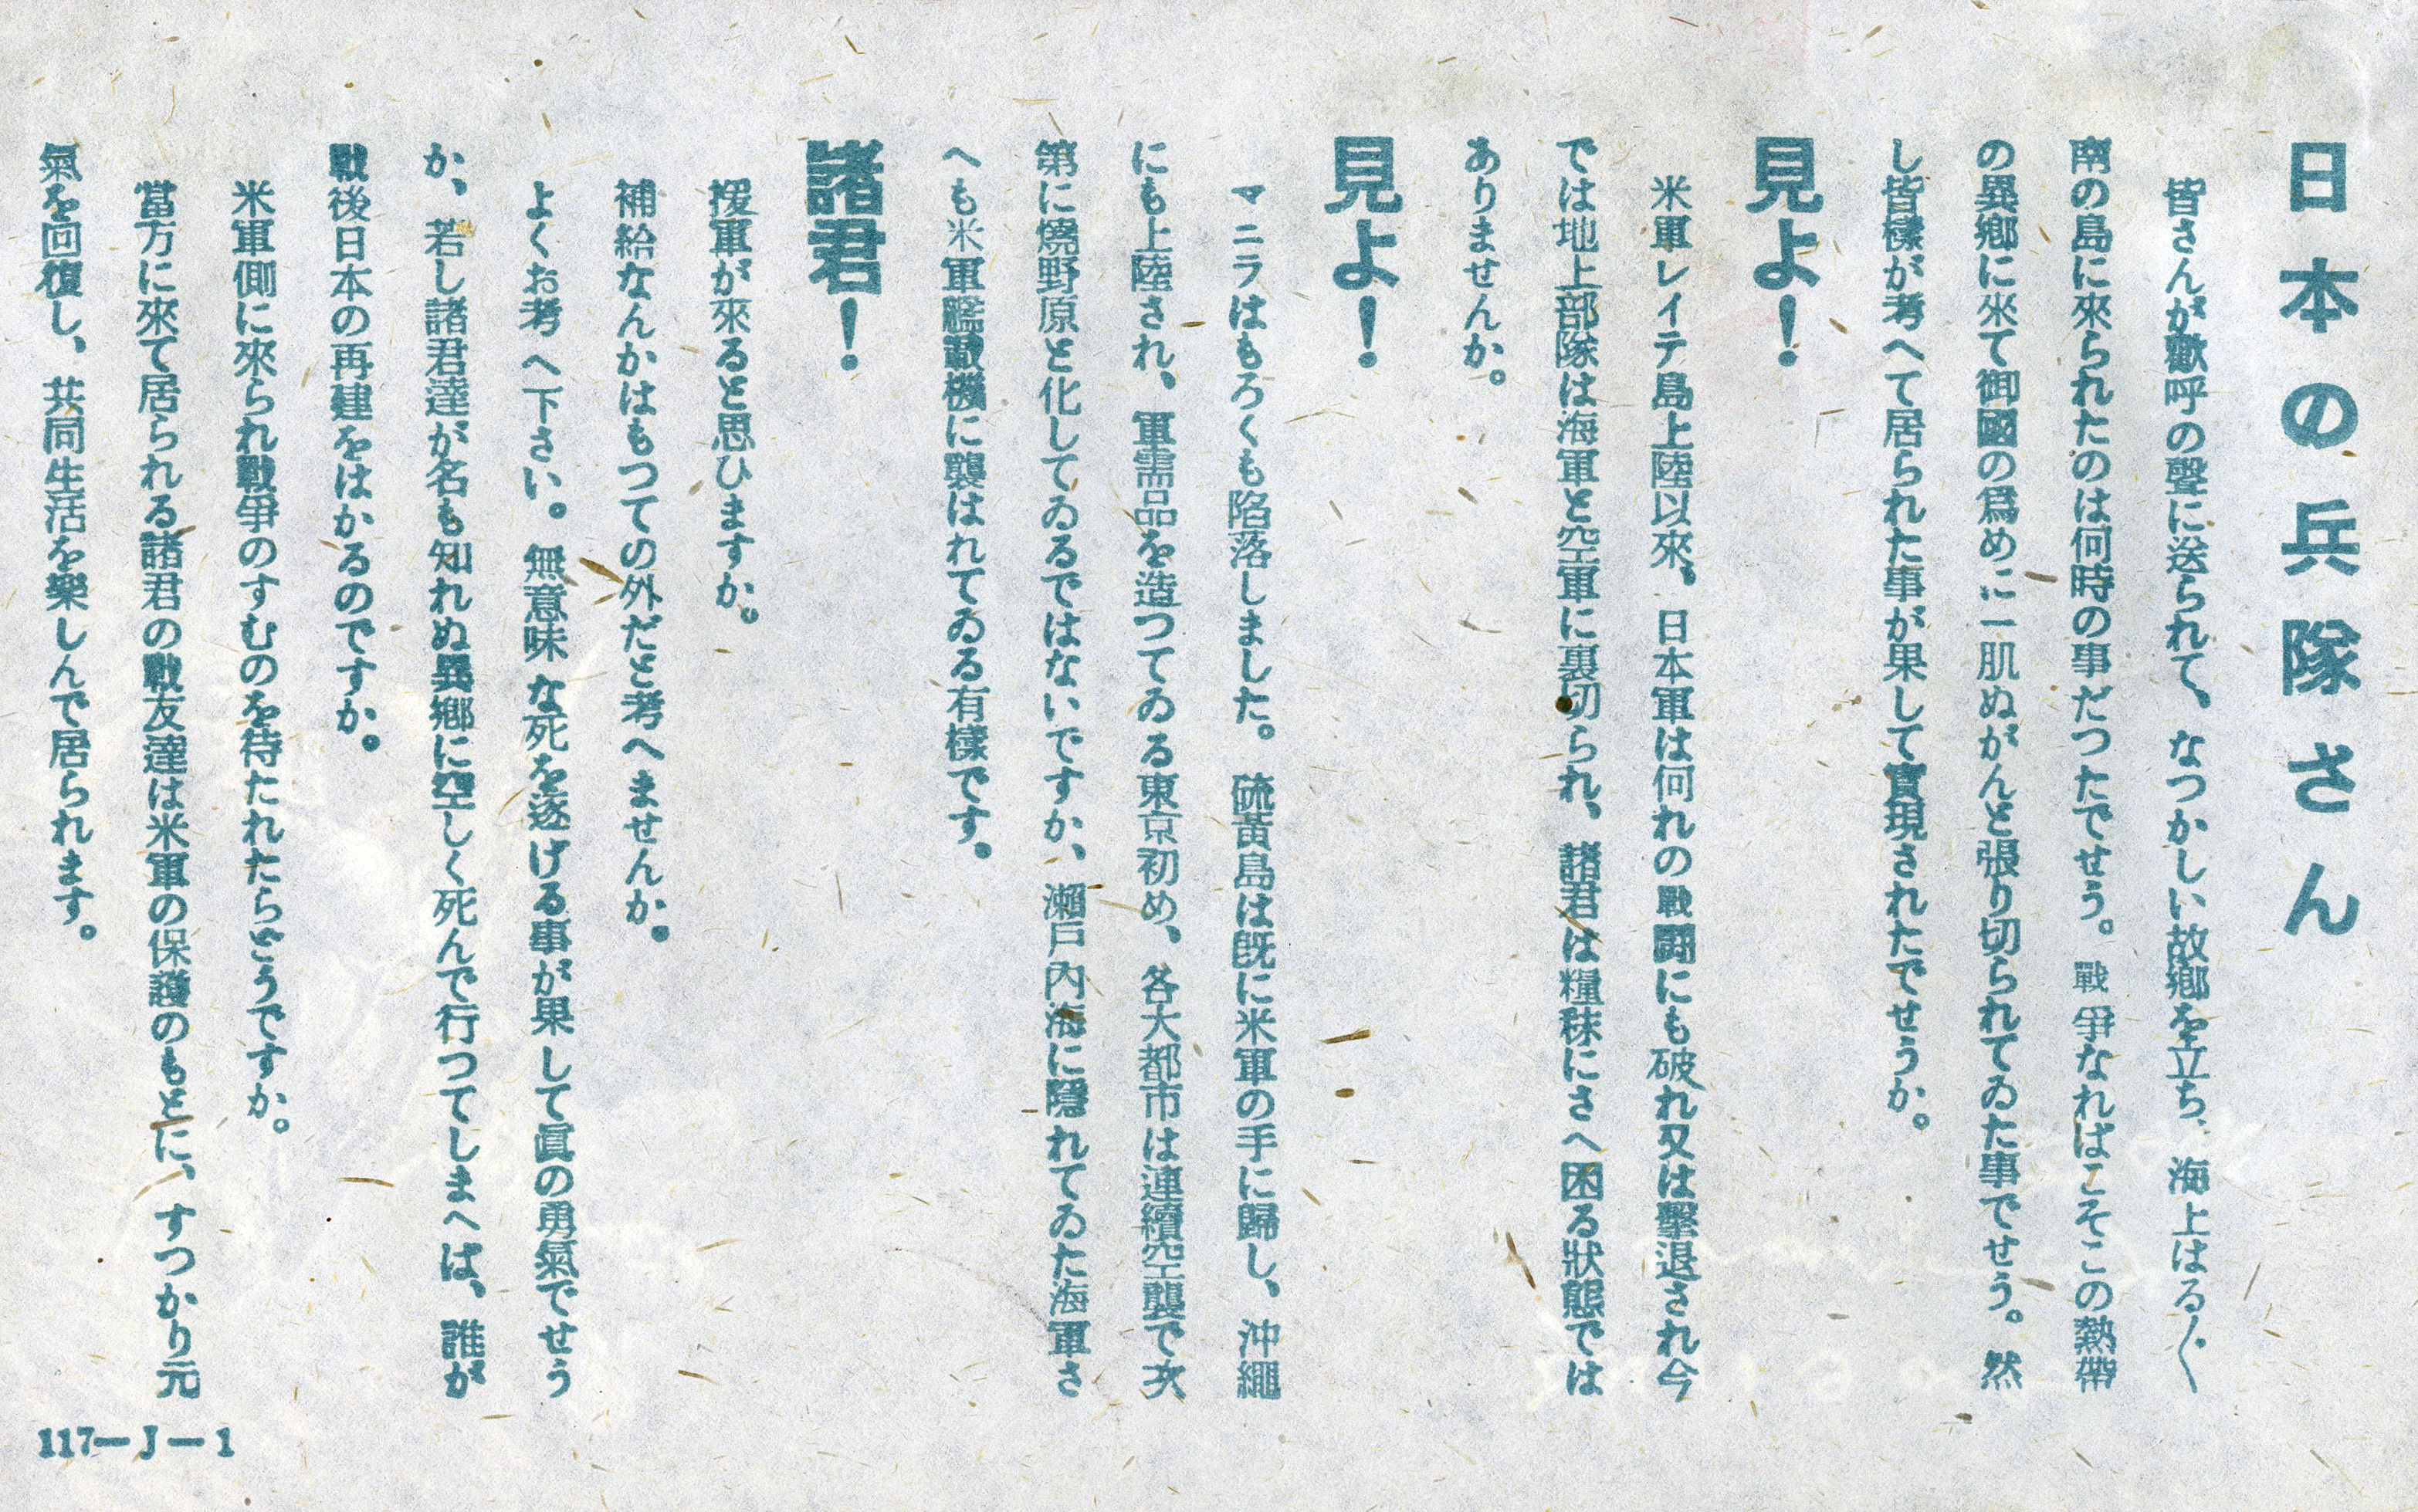 日本の兵隊さん
皆さんが歡呼の聲に送られて、なつかしい故鄕を立ち、海上はる〲
南の島に來られたのは何時の事だつたでせう。戰爭なればこそこの熱帶
の異鄕に來て御國の爲めに一肌ぬがんと張り切られてゐた事でせう。然
し皆樣が考へて居られた事が果して實現されたでせうか。
見よ！
米軍レイテ島上陸以來、日本軍は何れの戰鬪にも破れ又は擊退され今
では地上部隊は海軍と空軍に裏切られ、諸君は糧秣にさへ困る狀態では
ありませんか。
見よ！
マニラはもろくも陷落しました。硫黃島は旣に米軍の手に歸し、沖繩
にも上陸され、軍需品を造つてゐる東京初め、各大都市は連續空襲で次
第に燒野原と化してゐるではないですか、瀨戶內海に隱れてゐた海軍さ
へも米軍艦載機に襲はれてゐる有樣です。
諸君！
援軍が來ると思ひますか。
補給なんかはもつての外だと考へませんか。
よくお考へ下さい。無意味な死を逐げる事が果して眞の勇氣でせう
か、若し諸君達が名も知れぬ異鄕に空しく死んで行つてしまへば、誰が
戰後日本の再建をはかるのですか。
米軍側に來られ戰爭のすむのを待たれたらどうですか。
當方に來て居られる諸君の戰友達は米軍の保護のもとに、すつかり元
氣を回復し、共同生活を樂しんで居られます。
117-J-1